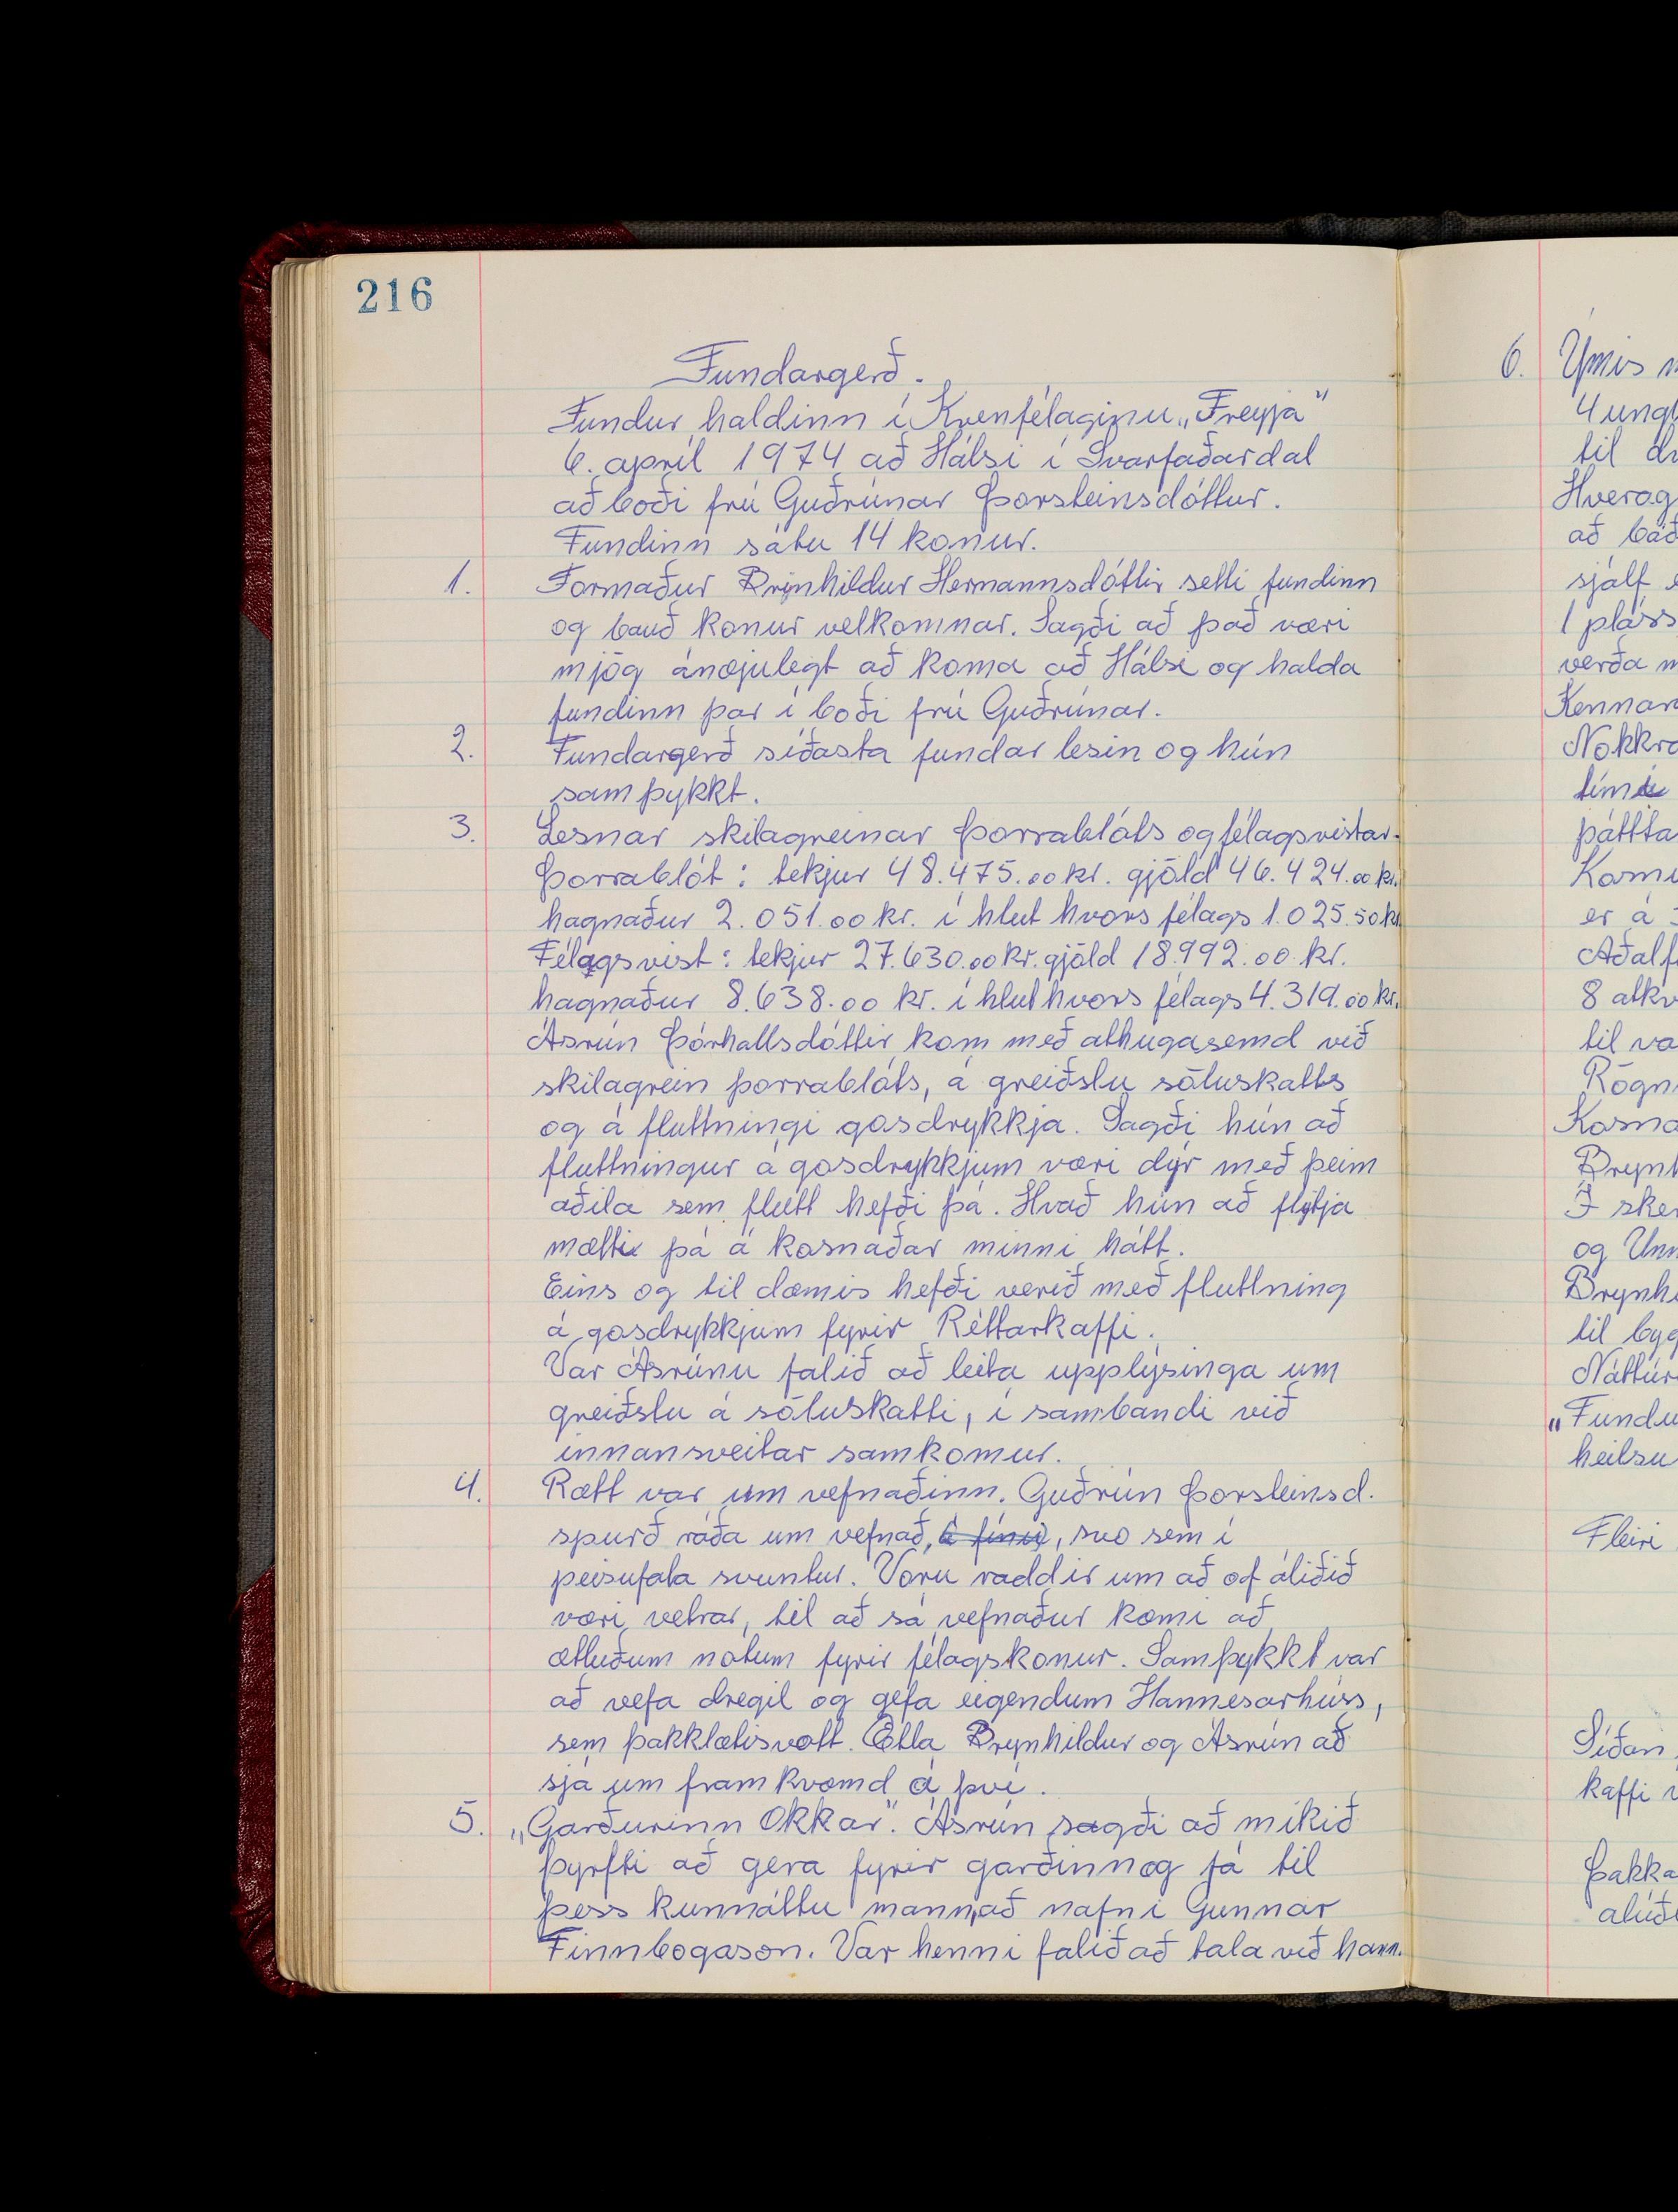 216
Fundargerð.
Fundur haldinn í Kvenfélaginu „Freyja"
6. apríl 1974 að Hálsi í Svarfaðardal
að boði frú Guðrúnar Þorsteinsdóttur.
Fundinn sátu 14 konur.
1. Formaður Brynhildur Hermannsdóttir setti fundinn
og bauð konur velkomnar. Sagði að það væri
mjög ánæjulegt að koma að Hálsi og halda
fundinn þar í boði frú Guðrúnar.
2. Fundargerð síðasta fundar lesin og hún
samþykkt.
3. Lesnar skilagreinar Þorrablóts og félagsvistar.
Þorrablót: tekjur 48.475.00 kr. gjöld 46.424.00 kr.
hagnaður 2.051.00 kr. í hlut hvors félags 1.025.50 kr
Félagsvist: tekjur 27.630.00 kr. gjöld 18.992.00 kr.
hagnaður 8.638.00 kr. í hlut hvors félags 4.319.00 kr.
Ásrún Þórhallsdóttir kom með athugasemd við
skilagrein þorrablóts, á greiðslu söluskatts
og á fluttningi gosdrykkja. Sagði hún að
fluttningur á gosdrykkjum væri dýr með þeim
aðila sem flutt hefði þá. Hvað hún að flytja
mætti þá á kosnaðar minni hátt.
Eins og til dæmis hefði verið með fluttning
á gosdrykkjum fyrir Réttarkaffi.
Var Ásrúnu falið að leita upplýsinga um
greiðslu á söluskatti, í sambandi við
innansveitar samkomur.
4. Rætt var um vefnaðinn. Guðrún Þorsteinsd.
spurð ráða um vefnað, á fínu, svo sem í
peisufata svuntur. Voru raddir um að of áliðið
væri vetrar, til að sá vefnaður kæmi að
ætluðum notum fyrir félagskonur. Samþykkt var
að vefa dregil og gefa eigendum Hannesarhúss,
sem þakklætisvott. Ætla Brynhildur og Ásrún að
sjá um framkvæmd á því.
5. „Garðurinn Okkar". Ásrún sagði að mikið
þyrfti að gera fyrir garðinn og fá til
þess kunnáttu mann, að nafni Gunnar
Finnbogason. Var henni falið að tala við hann.
6. Ýmis
4 ung
til
Hverag
að
sjálf
1 pláss
verða
Kennar
Nokkr
þátta
er á
Aðalf
8
til
Rögn
Brynh
Í
og Unn
Brynh
til
Náttúr
„Fundu
heilsu
Fleiri
Síðan
kaffi
Þakka